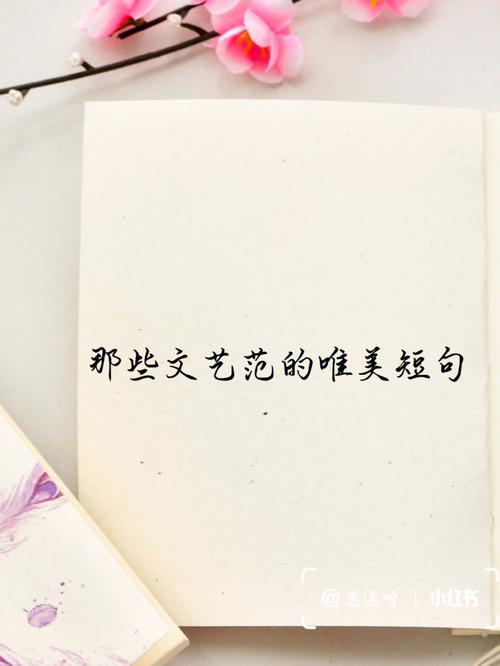 那些文艺范的唯美短句
@鹿遥呀 | 小红书